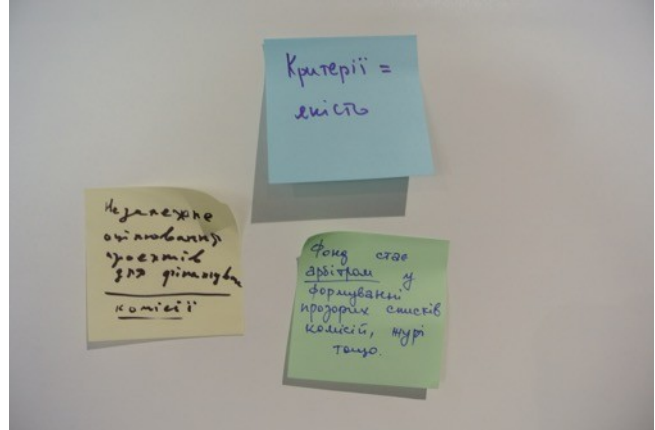 Критерії =
якість
Незалежне
оцінювання
проектів
для фінансування
комісії
Фонд стає
арбітром у
формуванні
прозорих списків
комісій, журі
тощо.